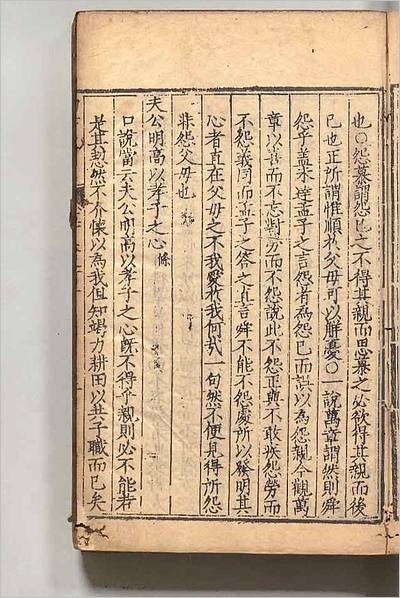 也○怨慕謂怨己之不得其親而思慕之必欲得其親而後
已也正所謂惟順於父母可以解憂○一說萬章謂然則舜
怨乎盖未達孟子之言怨者為怨己而誤以為怨親今觀萬
章以喜而不忘對勞而不怨說此不怨正與不敢疾怨勞而
不怨義同而孟子之答之直言舜不能不怨處所以發明其
心者直在父母之不我愛於我何哉一句然不便見得所怨
非怨父母也
夫公明高以孝子之心條
口說當云夫公明高以孝子之心既不得乎親則必不能若
是其恝然不介懷以為我但知竭力耕田以共子職而已矣